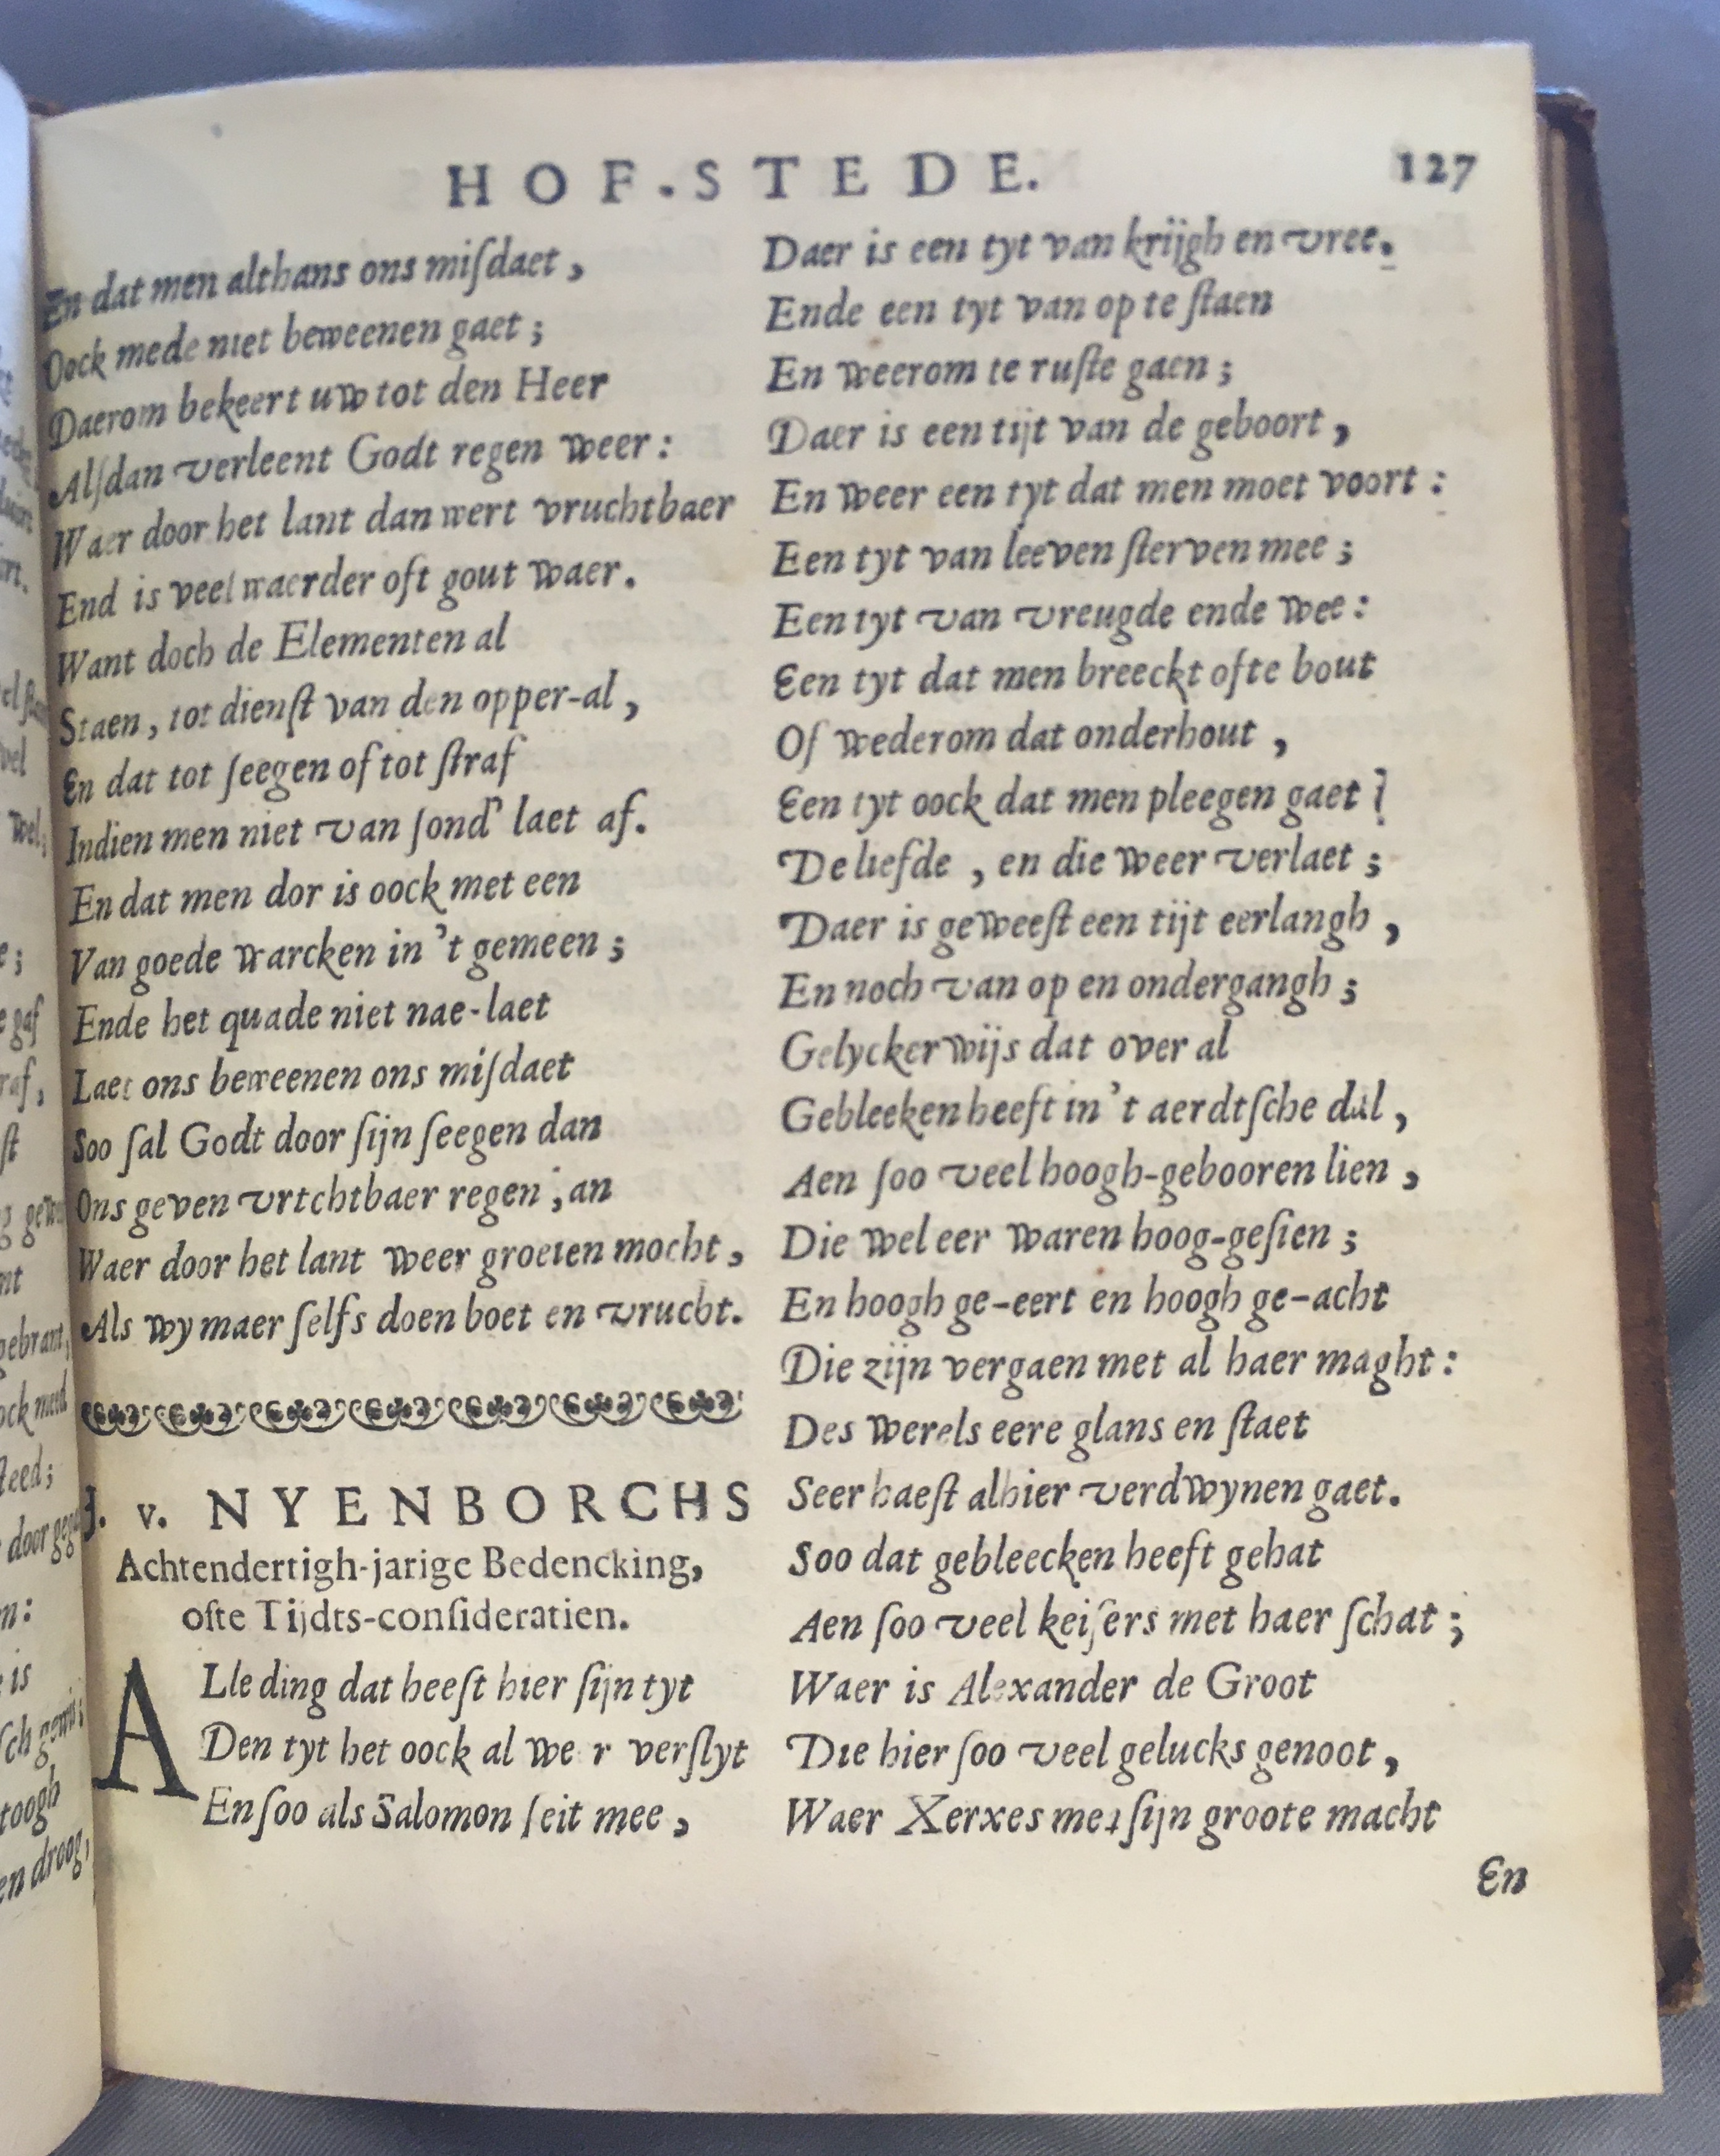 HOF-STEDE. 127
En dat men althans ons miſdaet,
Oock mede niet beweenen gaet;
Daerom bekeert uw tot den Heer
Alſdan verleent Godt regen weer:
Waer door het lant dan wert vruchtbaer
End is veel waerder oft gout waer.
Want doch de Elementen al
Staen, tot dienſt van den opper-al,
En dat tot ſeegen of tot ſtraf
Indien men niet van ſond' laet af.
En dat men dor is oock met een
Van goede warcken in 't gemeen;
Ende het quade niet nae-laet
Laet ons beweenen ons miſdaet
Soo ſal Godt door ſijn ſeegen dan
Ons geven vrtchtbaer regen; an
Waer door het lant weer groeien mocht,
Als wy maer ſelfs doen boet en vrucht.
v. NYENBORCHS
Achtendertigh-jarige Bedencking,
ofte Tijdts-conſideratien.
ALle ding dat heeft hier ſijn tyt
Den tyt het oock al we r verſlyt
En ſoo als Salomon ſeit mee,
Daer is een tyt van krijgh en vree.
Ende een tyt van op te ſtaen
En weerom te ruſte gaen;
Daer is een tijt van de geboort,
En weer een tyt dat men moet voort:
Een tyt van leeven ſterven mee;
Een tyt van vreugde ende wee:
Een tyt dat men breeckt ofte bout
Of wederom dat onderhout,
Een tyt oock dat men pleegen gaet
De liefde, en die weer verlaet;
Daer is geweeſt een tijt eerlangh,
En noch van op en ondergangh;
Gelyckerwijs dat over al
Gebleeken heeft in 't aerdtſche dal,
Aen ſoo veel hoogh-gebooren lien,
Die wel eer waren hoog-geſien;
En hoogh ge-eert en hoogh ge-acht
Die zijn vergaen met al haer maght:
Des werels eere glans en ſtaet
Seer haeſt alhier verdwynen gaet.
Soo dat gebleecken heeft gehat
Aen ſoo veel keiſers met haer ſchat;
Waer is Alexander de Groot
Die hier ſoo veel gelucks genoot,
Waer Xerxes met ſijn groote macht
En